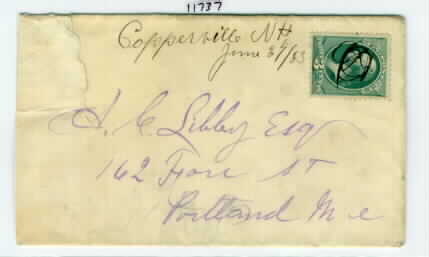 11737
Copperville NH
June /83
A. C. Libby Esq
162 Fore St
Portland Me